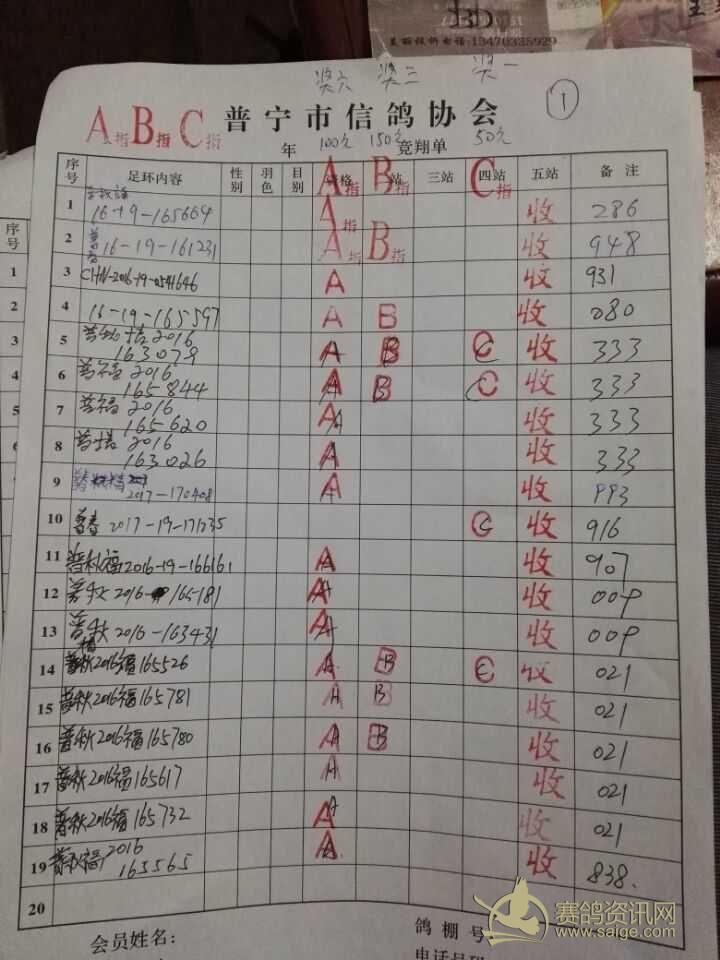 JBD
美丽投诉电话:13470335929
奖六 奖三 奖一
①
A指 B指 C指 普宁市信鸽协会
年 100元 150元 竞翔单 50元
序号 足环内容 性别 羽色 目别 资格 A指 站 B指 三站 四站 C指 五站 备注
1 16-19-165664 A指 收 286
2 16-19-161231 A指 B指 收 948
3 CHN-2016-19-0541646 A 收 931
4 16-19-165597 A B 收 080
5 2016 163079 A B C 收 333
6 普福 2016 165844 A B C 收 333
7 普福 2016 165620 A 收 333
8 2016 163026 A 收 333
9 2017-170408 A 收 993
10 普春 2017-19-171235 C 收 916
11 普秋福2016-19-166161 A 收 907
12 普秋2016-165181 A 收 009
13 普秋 2016-163431 A 收 009
14 普秋2016福165526 A B C 收 021
15 普秋2016福165781 A B 收 021
16 普秋2016福165780 A B 收 021
17 普秋2016福165617 A 收 021
18 普秋2016福165732 A 收 021
19 普秋福2016 165565 A 收 838.
20
会员姓名：
鸽棚号：
序号
1
2
3
4
5
6
7
8
赛鸽资讯网
www.saige.com